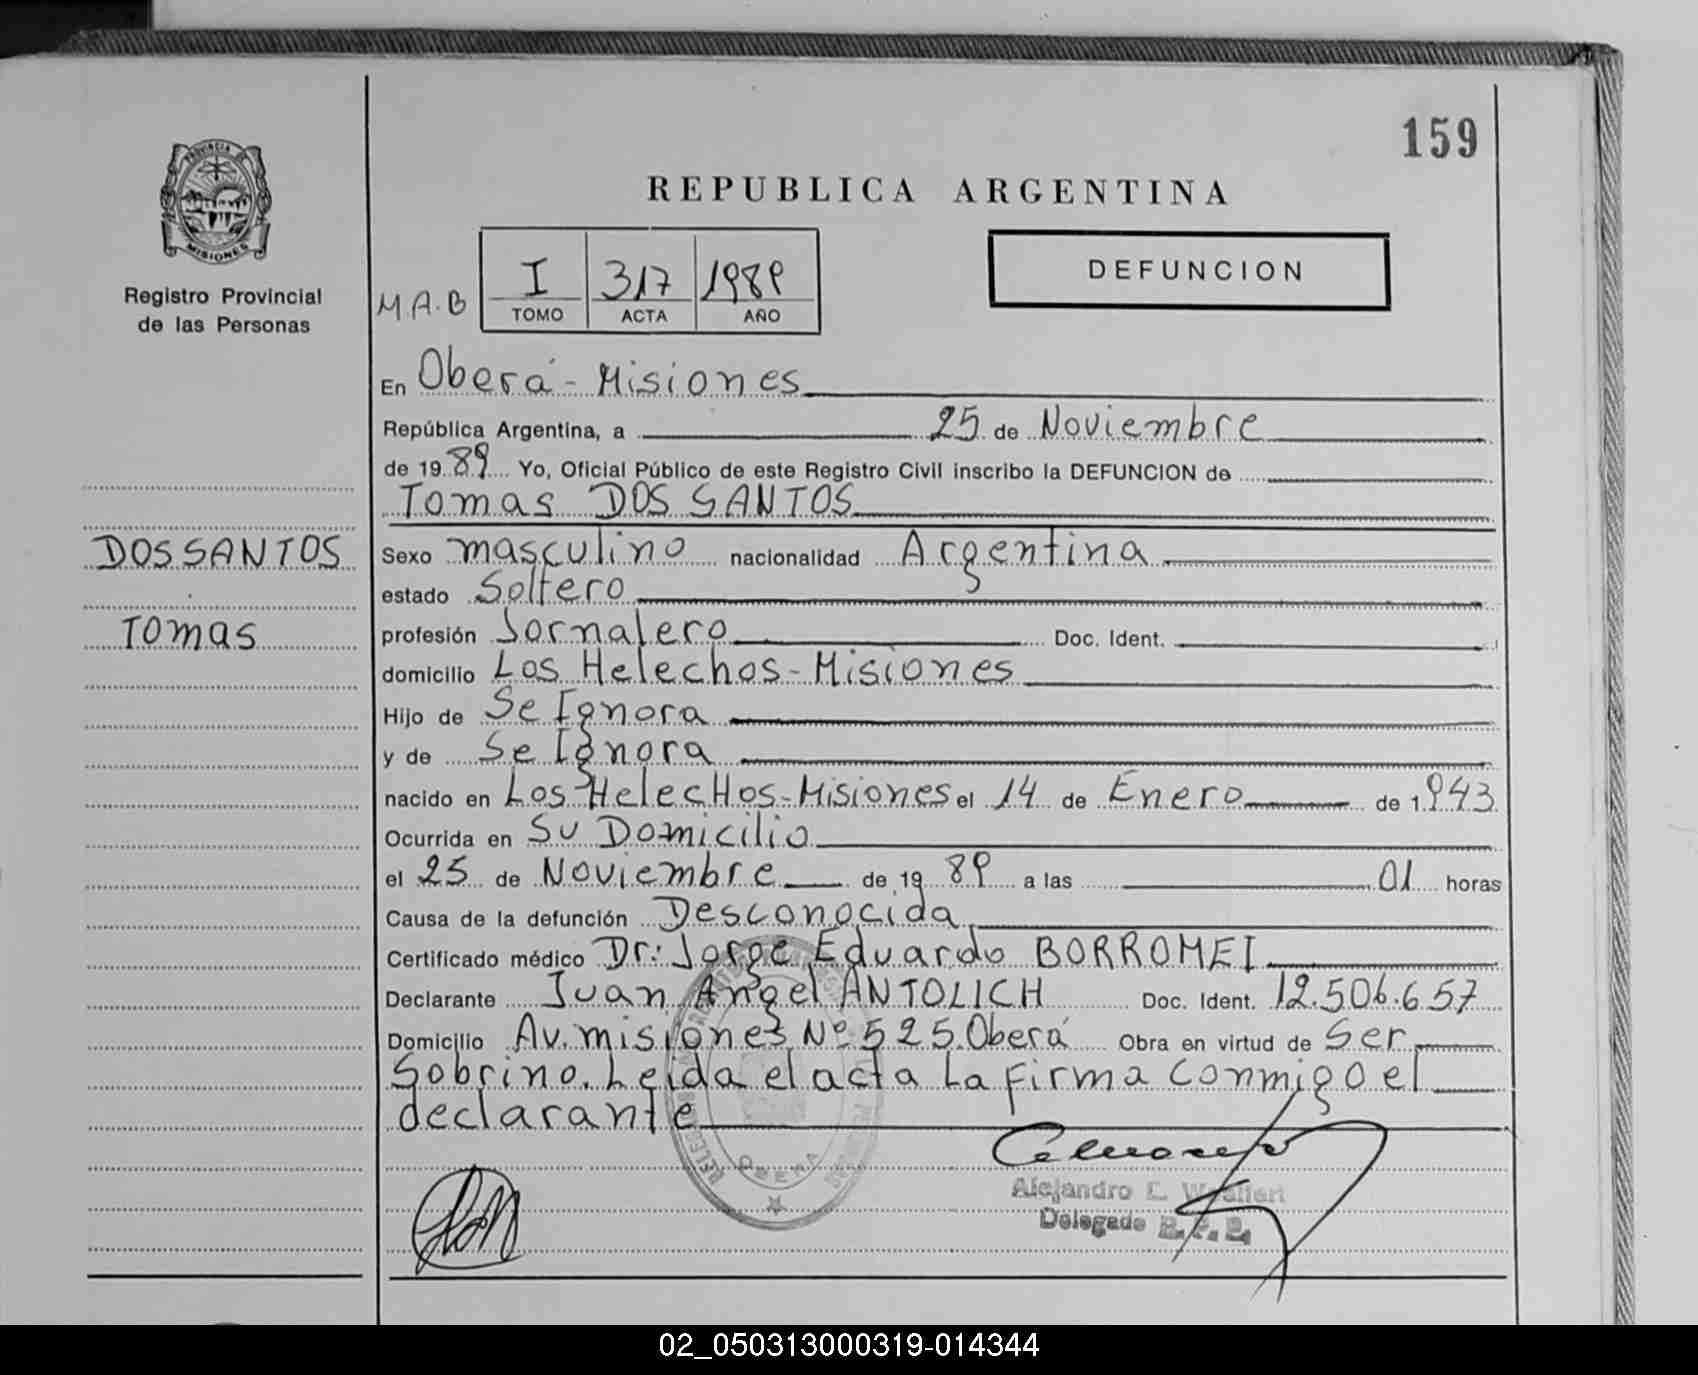 159
PROVINCIA DE
MISIONES
Registro Provincial
de las Personas
REPUBLICA ARGENTINA
M.A.B
I 317 1989
TOMO ACTA AÑO
DEFUNCION
En Oberá - Misiones
República Argentina, a 25 de Noviembre
de 19 89 Yo, Oficial Público de este Registro Civil inscribo la DEFUNCION de
Tomas DOS SANTOS
DOS SANTOS
Tomas
Sexo masculino nacionalidad Argentina
estado Soltero
profesión Jornalero Doc. Ident.
domicilio Los Helechos - Misiones
Hijo de Se Ignora
y de Se Ignora
nacido en Los HelecHos - Misiones el 14 de Enero de 1.943
Ocurrida en Su Domicilio
el 25 de Noviembre de 19 89 a las 01 horas
Causa de la defunción Desconocida
Certificado médico Dr: Jorge Eduardo BORROMEI
Declarante Juan Angel ANTOLICH Doc. Ident. 12.506.657
Domicilio Av. misiones Nº 525 Oberá Obra en virtud de Ser
Sobrino. Leida el acta La firma Conmigo el
declarante
OBERA
Alejandro E.
Delegado R.P.P.
02_050313000319-014344